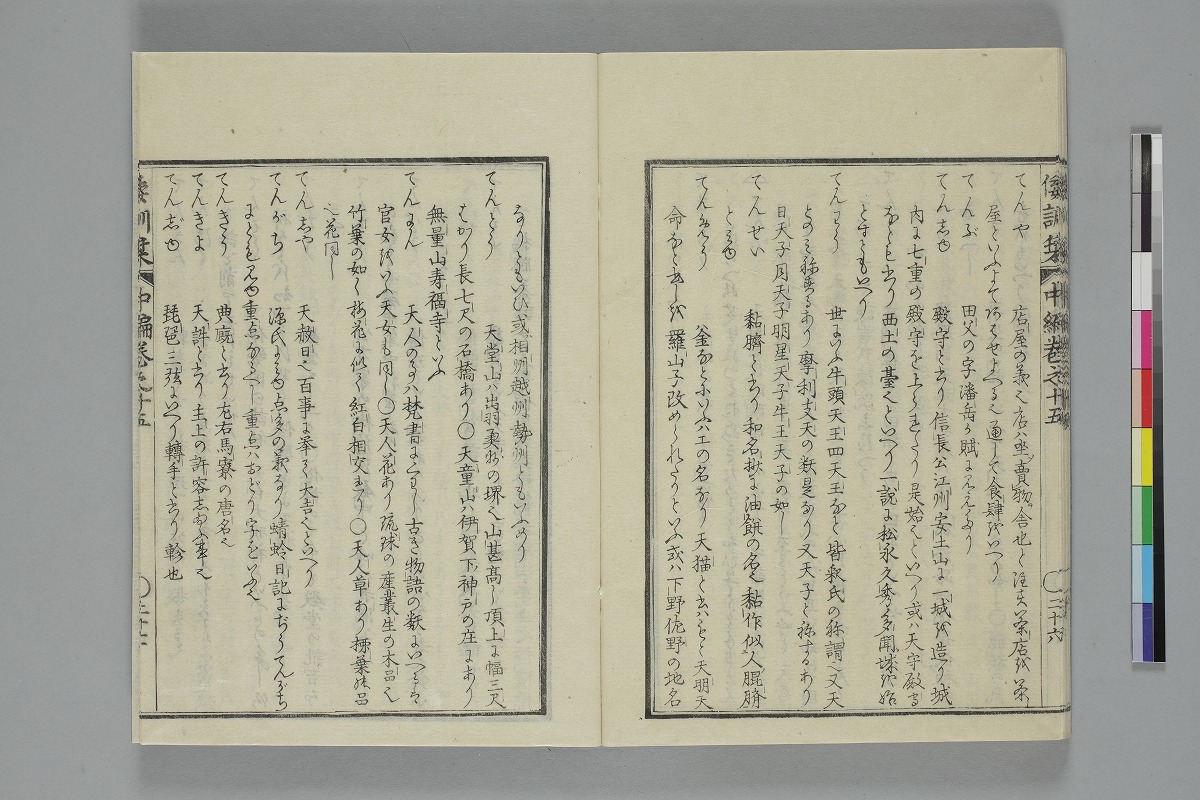 倭訓栞 中編巻之十五 二十六
てんや 店屋の義也店ハ坐賣物舎也と注す茶店を茶
屋といふよてみせよめる也通して食肆をいへり
てんぶ 田父の字潘岳か賦に見えたり
てんしゆ 殿守と書り信長公江州安土山に一城を造り城
内に七重の殿守を上られたり是始也といへり或ハ天守殿守
なとも書り西土の臺也といへり一説に松永久秀多聞城を始
とすともいへり
てんわう 世にいふ牛頭天王四天王なと皆釈氏の称謂也又天
とのミ称するあり摩利支天の類是なり又天子と称するあり
日天子月天子明星天子牛王天子の如し
てんせい 黏臍と書り和名抄に油餅の名也黏作似人腽臍
とみゆ
てんみやう 釜なとにいふハエの名なり天猫と書ハもと天明天
命なと書しを羅山子改められたりといふ或ハ下野佐野の地名
なりともいひ或相州越州勢州ともいふめり
てんとう 天堂山ハ出羽の堺也山甚高し頂上に幅三尺
はかり長七尺の石橋あり〇天童山ハ伊賀下神戸の庄にあり
無量山寿福寺といふ
てにん 天人の事ハ梵書に古き物語の類にいへるハ
官女をいふ天女も同し〇天人花あり琉球の産叢生の木品也
竹葉の如く梅花に似て紅白相交れり〇天人草あり葉
也花同し
てんしや 天赦日也百事に挙て大吉也といへり
てんがち 源氏にみゆ点多の義なり蜻蛉日記にもてんがち
にとも見ゆ重点なるへし重点ハおどり字をいふ也
てんきう 典厩と書り左右馬寮の唐名也
てんきよ 天許と書り主上の許容したまふ事也
てんじゆ 琵琶三弦にいへり轉手と書り軫也
倭訓栞 中編巻之十五 二十七